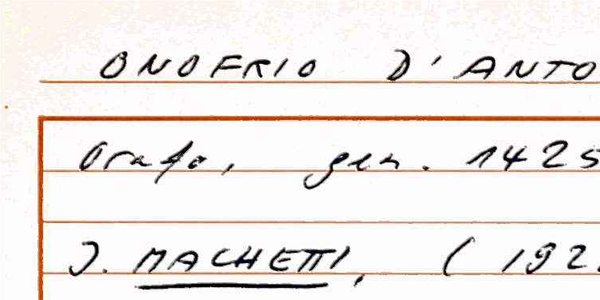 ONOFRIO D'ANTO
Orafo, gen. 1425
J. MACHETTI, (192.